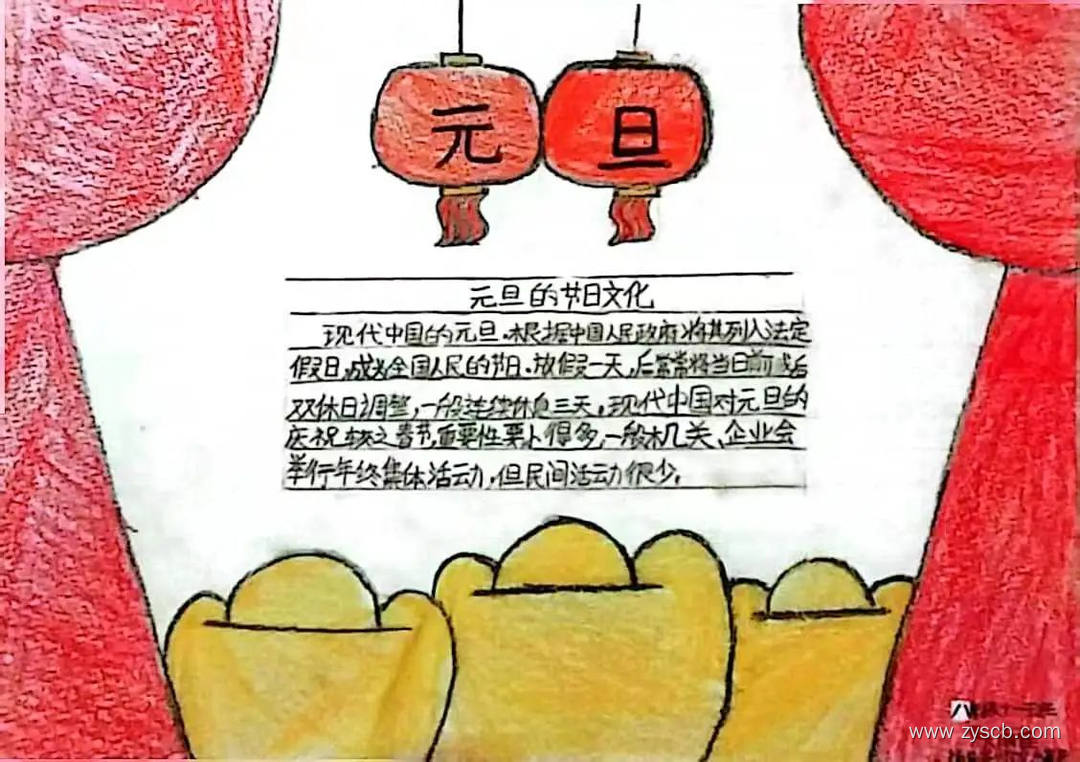 元 旦
元旦的节日文化
现代中国的元旦,根据中国人民政府将其列入法定
假日,成为全国人民的节日。放假一天,后常常将当日前或后
双休日调整,一般连续休息三天。现代中国对元旦的
庆祝较之春节,重要性要小得多,一般机关、企业会
举行年终集体活动,但民间活动很少。
www.zyscb.com